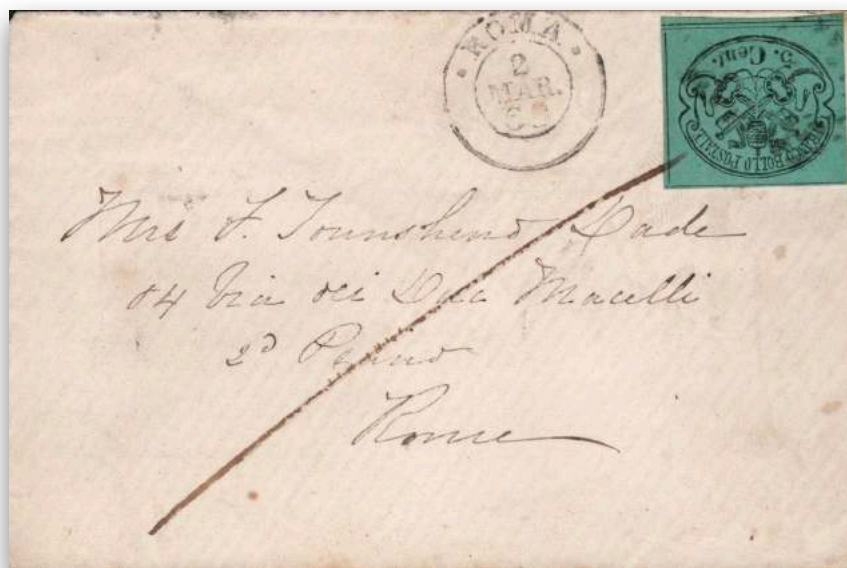 ROMA
2
MAR.
5. Cent.
FRANCO BOLLO POSTALE
Mrs F. Townshend Dade
84 Via dei Due Macelli
2D Piano
Rome